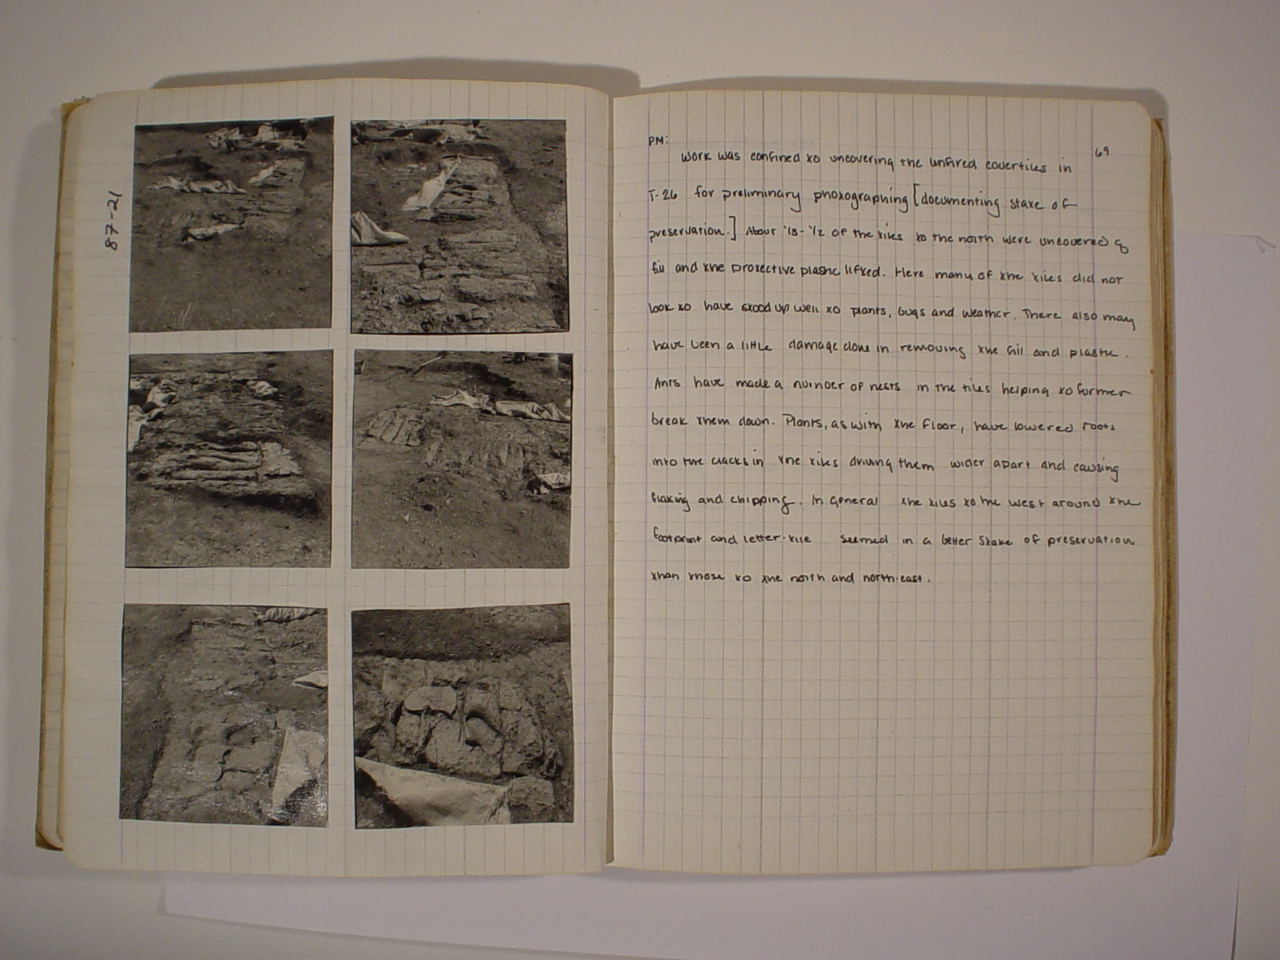 87-21
69
PM:
Work was confined to uncovering the unfired covertiles in
T-26 for preliminary photographing [documenting state of
preservation.] About 1/3-1/2 of the tiles to the north were uncovered of
fill and the protective plastic lifted. Here many of the tiles did not
look to have stood up well to plants, bugs and weather. There also may
have been a little damage done in removing the fill and plastic.
Ants have made a number of nests in the tiles helping to further
break them down. Plants, as with the floor, have lowered roots
into the cracks in the tiles driving them wider apart and causing
flaking and chipping. In general the tiles to the west around the
footprint and letter-tile seemed in a better state of preservation
than those to the north and north-east.